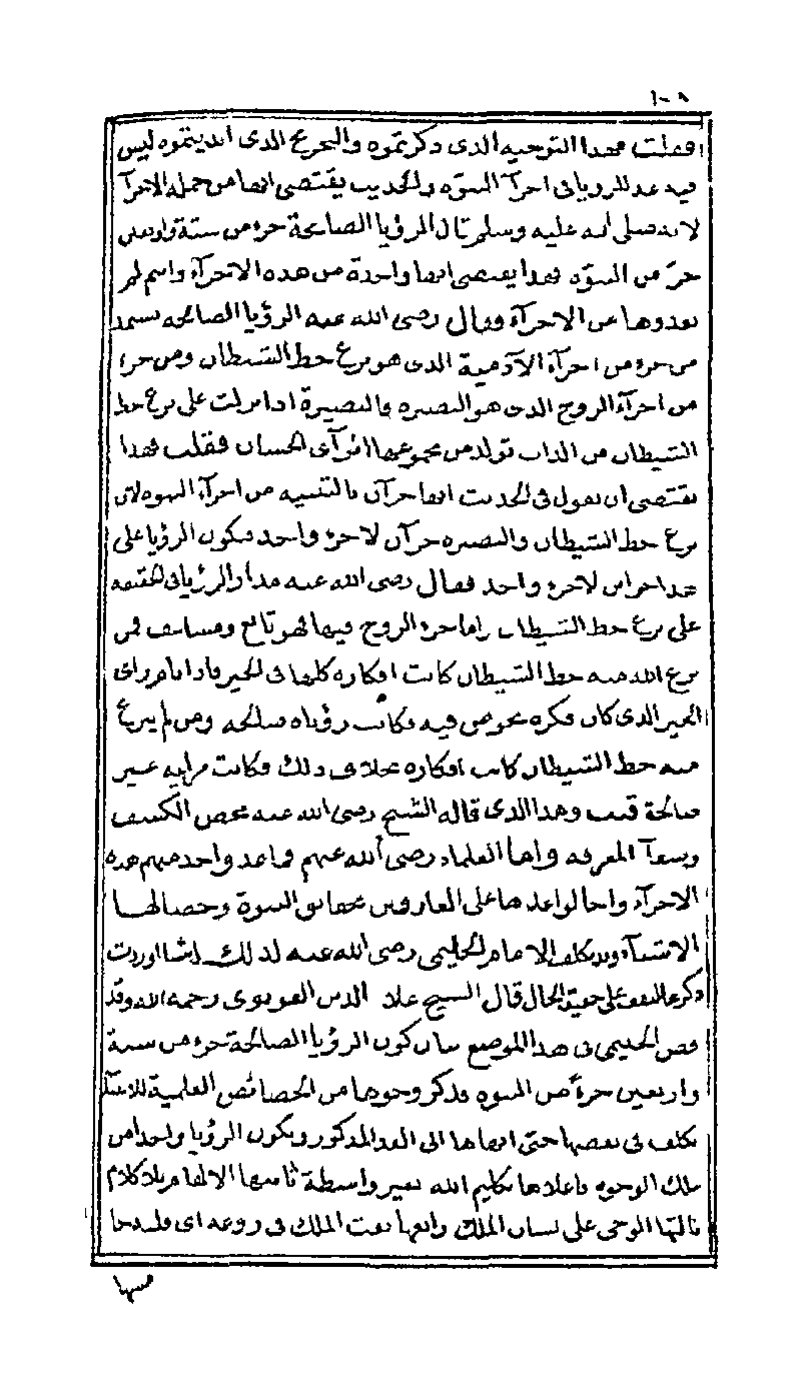 ١٠٨
فقلت فهذا التوجيه الذى ذكرتموه والتخريج الذى ابديتموه ليس
فيه عد للرؤيا فى اجزآء النبوّة والحديث يقتضى انها من جملة الاجزآء
لانه صلى الله عليه وسلم قال الرؤيا الصالحة جزء من ستة واربعين
جزءً من النبوّة فهذا يقتضى انها واحدة من هذه الاجزآء وانتم لم
تعدوها من الاجزآء فقال رضى الله عنه الرؤيا الصالحة تستمد
من جزء من اجزآء الآدمية الذى هو نزع حظ الشيطان ومن جزء
من اجزآء الروح الذى هو البصيرة فالبصيرة اذا نزلت على نزع حظ
الشيطان من الذات تولد من مجموعهما المرآى الحسان فقلت فهذا
يقتضى ان يقول فى الحديث انها جزآن بالتثنية من اجزآء النبوة لان
نزع حظ الشيطان والبصيرة جزآن لا جزء واحد فتكون الرؤيا على
هذا جزاين لا جزء واحد فقال رضى الله عنه مدار الرؤيا فى الحقيقة
على نزع حظ الشيطان واما جزء الروح فيها فهو تابع ومساعف فمن
نزع الله منه حظ الشيطان كانت افكاره كلها فى الخير فاذا نام راى
الخير الذى كان فكره يخوض فيه فكانت رؤياه صالحة ومن لم ينزع
منه حظ الشيطان كانت افكاره بخلاف ذلك فكانت مرايه غير
صالحة قلت وهذا الذى قاله الشيخ رضى الله عنه محض الكشف
و المعرفة واما العلماء رضى الله عنهم فما عد واحد منهم هذه
الاجزآء وانما احالوا عدها على العارفين بحقائق النبوة وخصالها
الا وقد تكلف الامام الحليمى رضى الله عنه لذلك اوردت
ذكره لتقف على حقيقة الحال قال الشيخ علاء الدين القونوى رحمه الله وقد
قصد الحليمى فى هذا الموضع بيان كون الرؤيا الصالحة جزء من ستة
واربعين جزءً من النبوة فذكر وجوها من الخصائص العلمية للانبيآء
تكلف فى بعضها حتى انهاها الى العدد المذكور وتكون الرؤيا واحدا من
تلك الوجوه فاعلاها تكليم الله بغير واسطة ثانيها الالهام بلا كلام
ثالثها الوحى على لسان الملك رابعها نفث الملك فى روعه اى قلبه